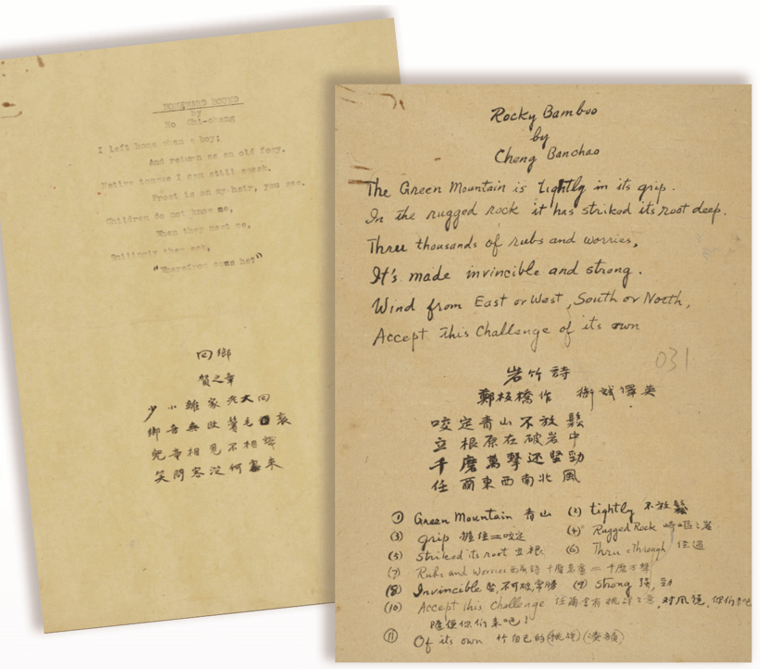 HOMEWARD BOUND
by
Ho Chi-chang
I left home when a boy;
And return as an old fogy.
Native tongue I can still speak.
Frost is on my hair, you see.
Children do not know me,
When they meet me,
Smilingly they ask,
"Wherefrom come he?"
回鄉
賀之章
少小離家老大回
鄉音無改鬢毛衰
兒童相見不相識
笑問客從何處來
Rocky Bamboo
by
Cheng Banchao
The Green Mountain is tightly in its grip.
In the rugged rock it has striked its root deep.
Three thousands of rubs and worries,
It's made invincible and strong.
Wind from East or West, South or North,
Accept this Challenge of its own
031
岩竹詩
鄭板橋作 譯英
咬定青山不放鬆
立根原在破岩中
千磨萬擊还堅勁
任爾東西南北風
(1) Green Mountain 青山 (2) tightly 不放鬆
(3) grip 握住=咬定 (4) Rugged Rock
(5) Striked its root 立根 (6) Thru (Through)
(7) Rubs and Worries
(8) Invincible (9) Strong 强, 勁
(10) Accept this Challenge
(11) Of its own 竹自己的